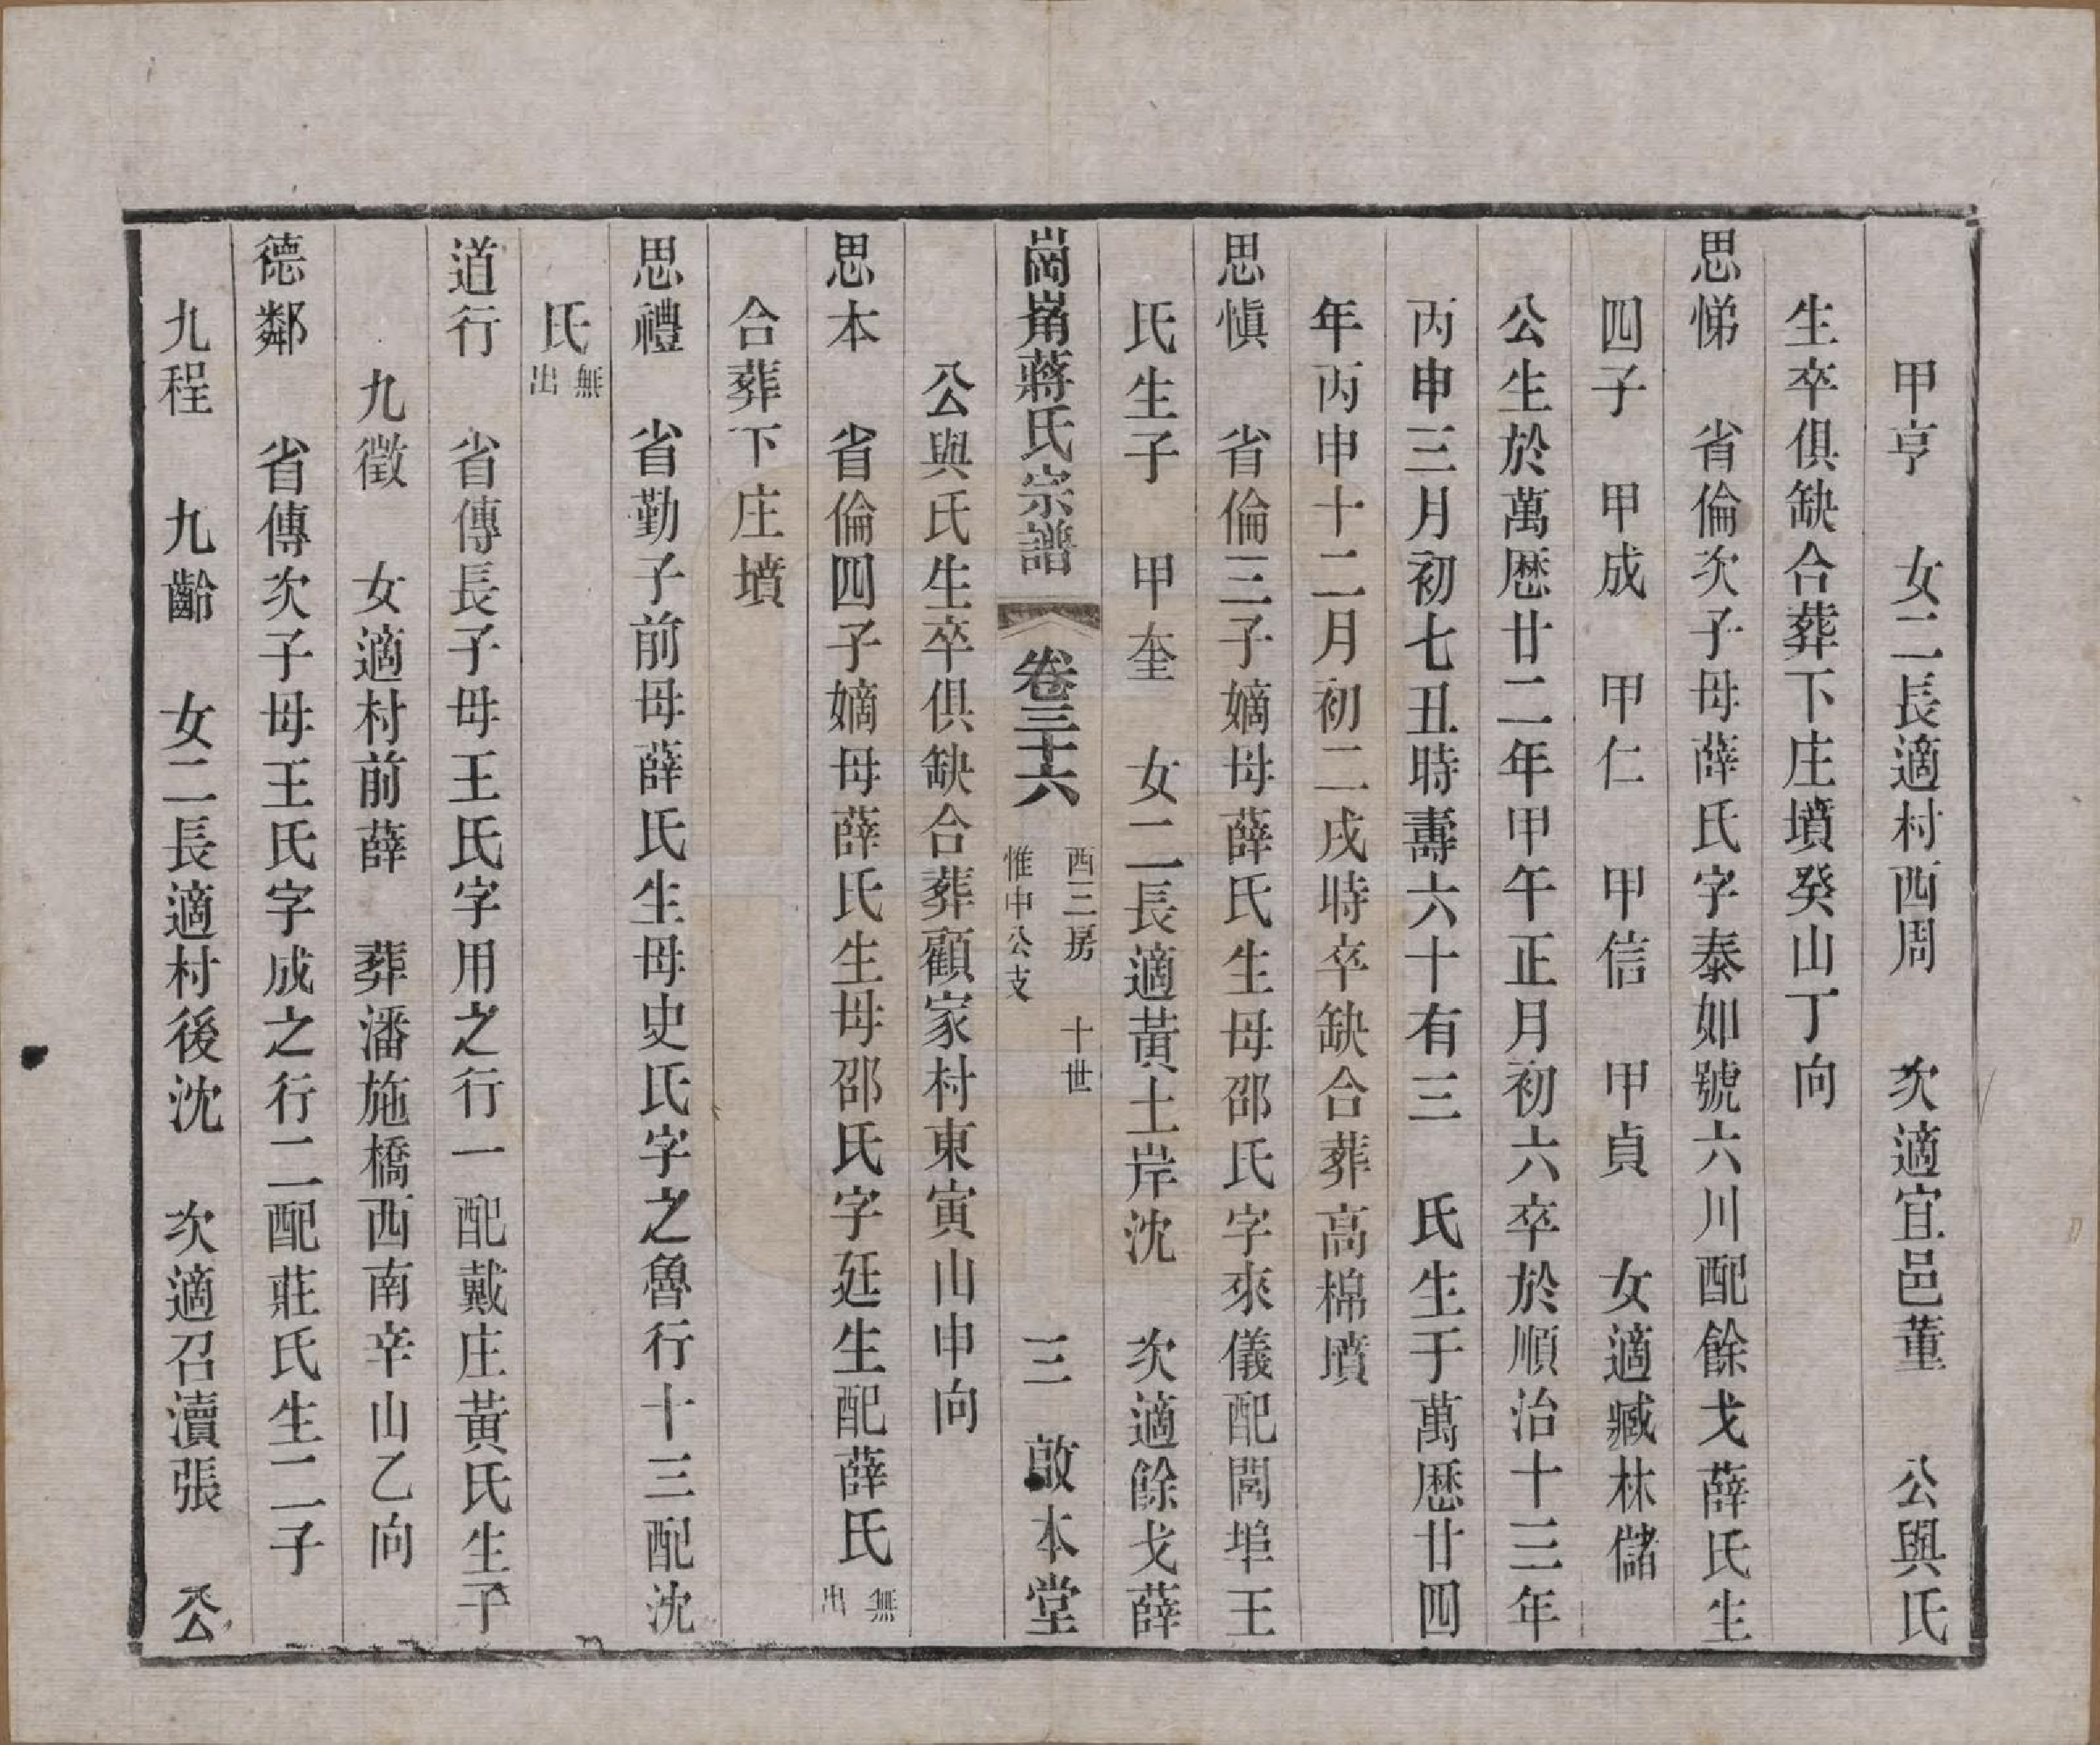 甲亨　女二長適村西周　次適宜邑董　公與氏
生卒俱缺合葬下庄墳癸山丁向
思悌　省倫次子母薛氏字泰如號六川配餘戈薛氏生
四子　甲成　甲仁　甲信　甲貞　女適臧林儲
公生於萬厯廿二年甲午正月初六卒於順治十三年
丙申三月初七丑時壽六十有三　氏生于萬厯廿四
年丙申十二月初二戌時卒缺合葬高棉墳
思愼　省倫三子嫡母薛氏生母邵氏字來儀配閭埠王
氏生子　甲奎　女二長適黃土岸沈　次適餘戈薛
崗崗蔣氏宗譜　卷三十六　西三房　十世　惟中公支　三　啟本堂
公與氏生卒俱缺合葬顧家村東寅山申向
思本　省倫四子嫡母薛氏生母邵氏字廷生配薛氏無出
合葬下庄墳
思禮　省勤子前母薛氏生母史氏字之魯行十三配沈
氏無出
道行　省傳長子母王氏字用之行一配戴庄黃氏生子
九徵　女適村前薛　葬潘施橋西南辛山乙向
德鄰　省傳次子母王氏字成之行二配莊氏生二子
九程　九齡　女二長適村後沈　次適召瀆張　公